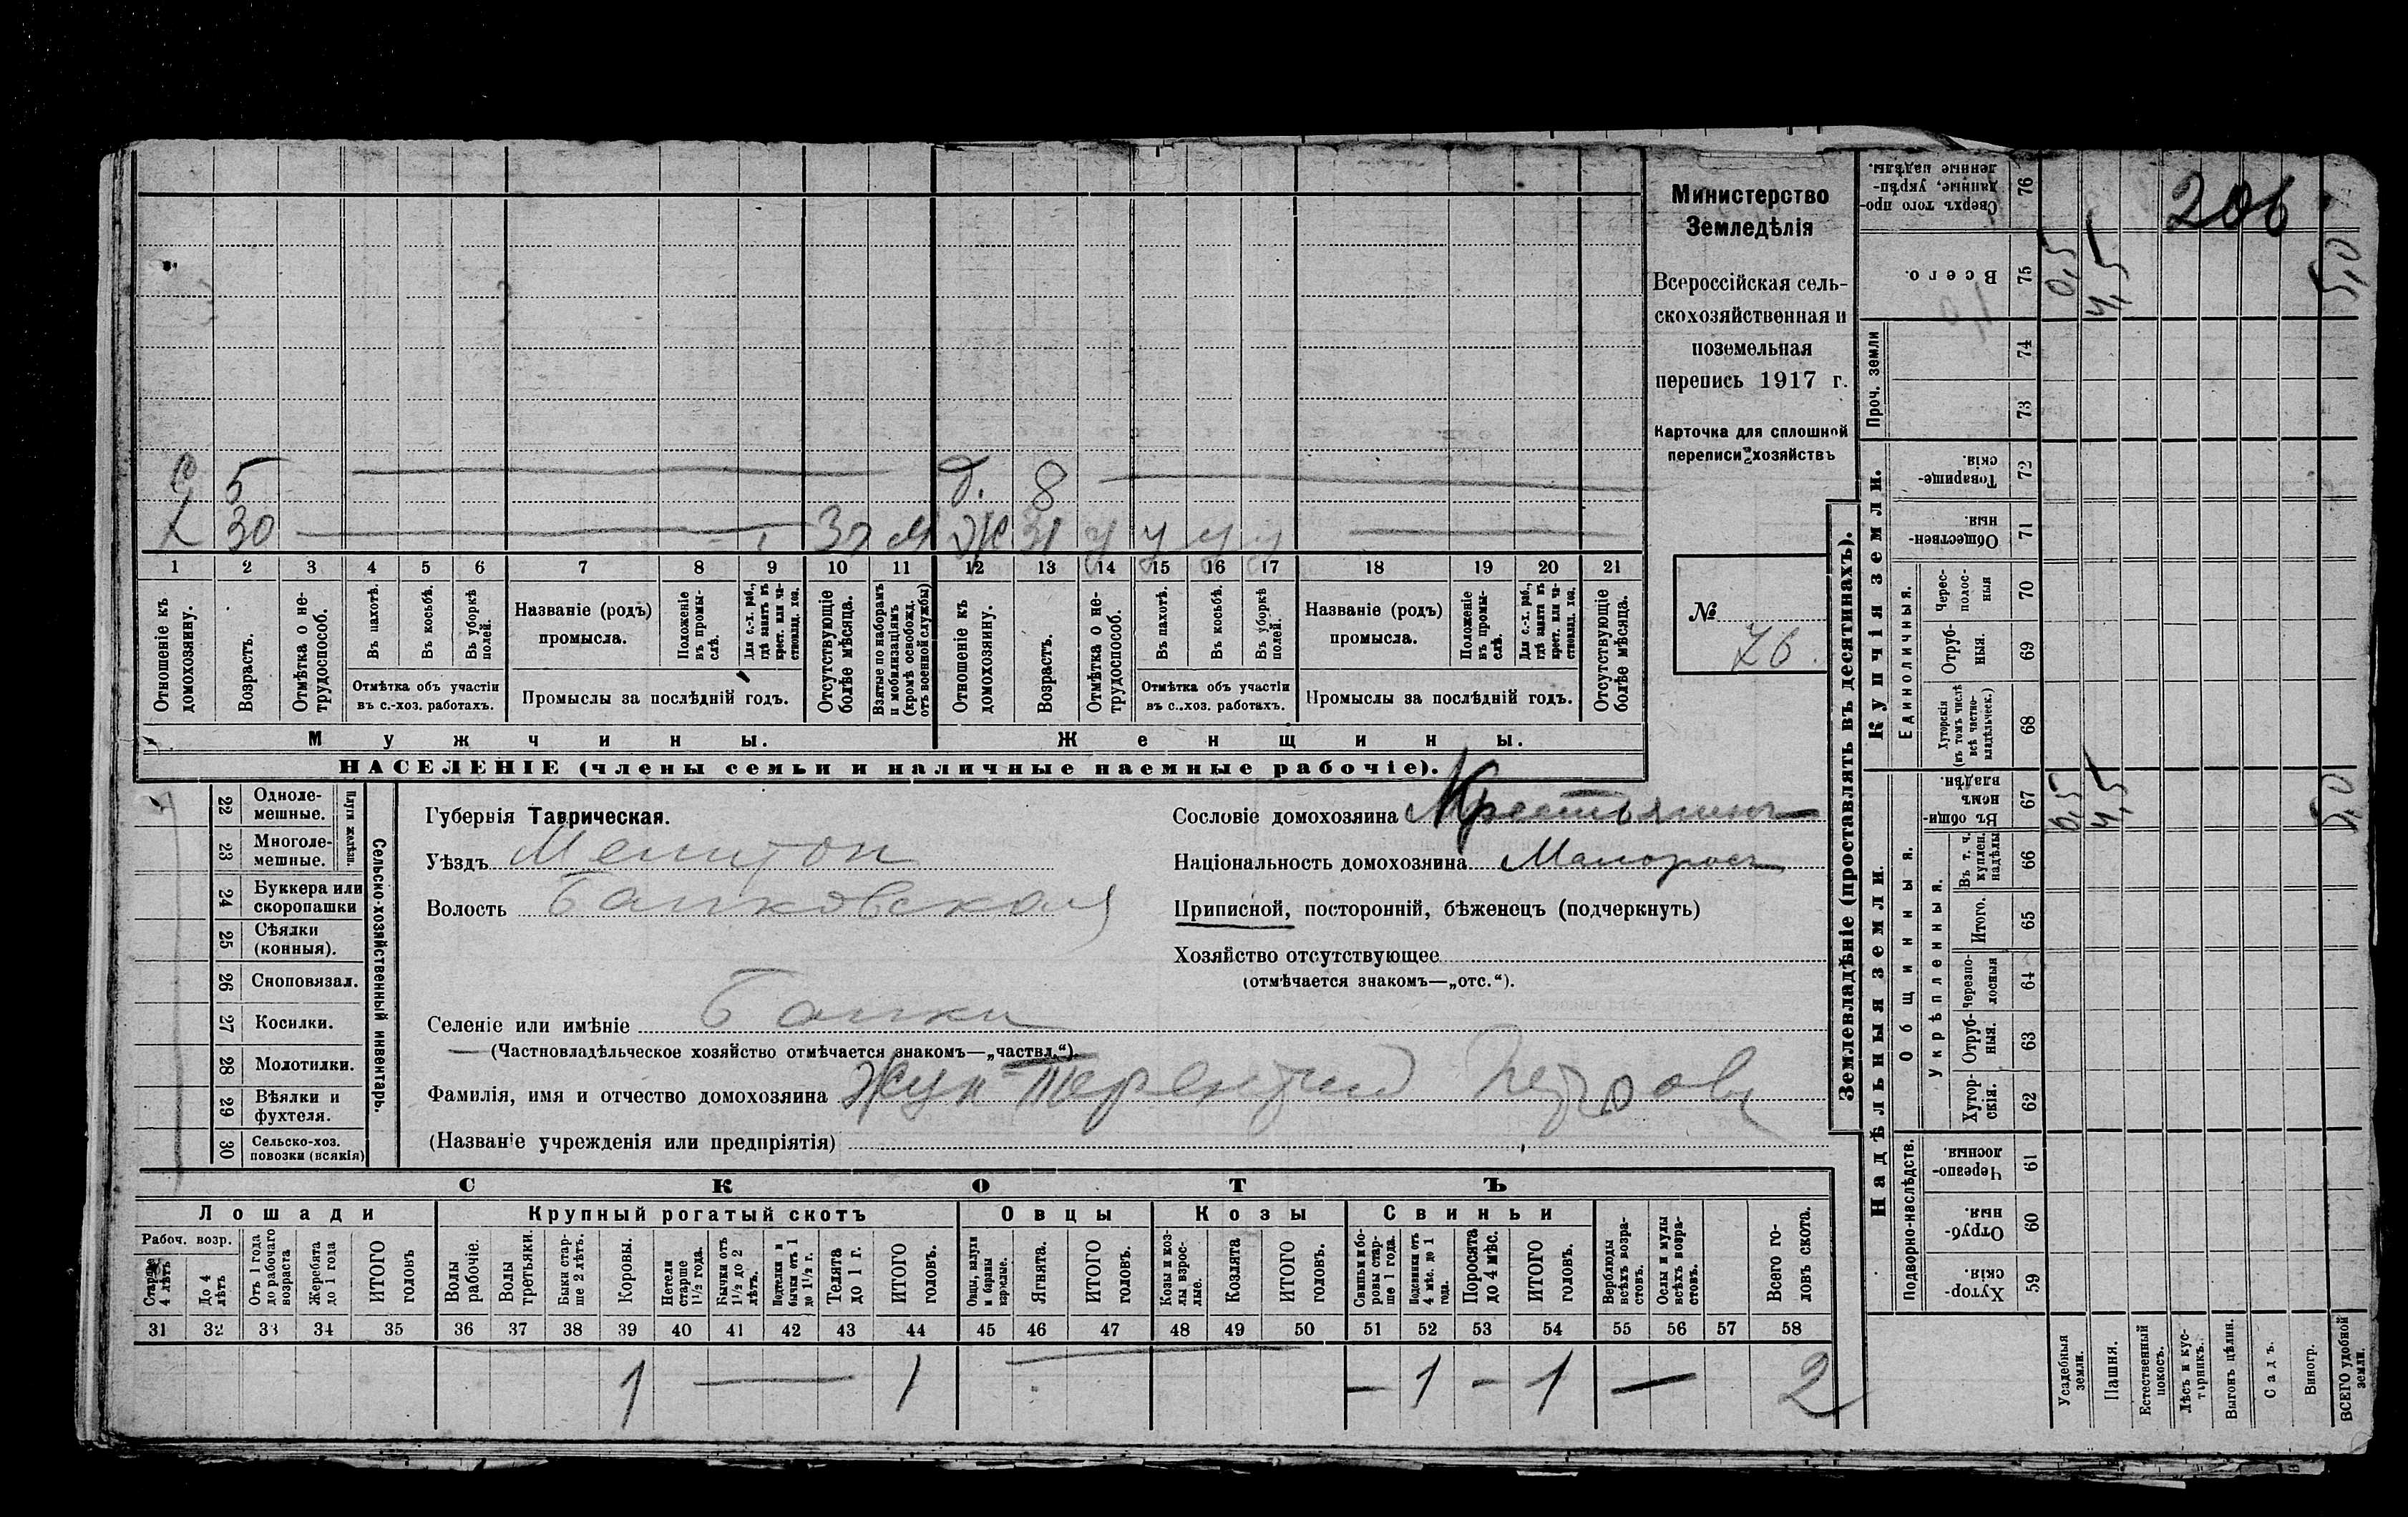 Министерство
Земледѣлія
Всероссійская сель-
скохозяйственная и
поземельная
перепись 1917 г.
Карточка для сплошной
переписи хозяйствъ
№ 76.
206
С 5 Д. 8
Х 30 30 м Ж 31 у у у у
1 2 3 4 5 6 7 8 9 10 11 12 13 14 15 16 17 18 19 20 21
Отношеніе къ домохозяину.
Возрастъ.
Отмѣтка о не-трудоспособ.
Въ пахотѣ.
Въ косьбѣ.
Въ уборкѣ полей.
Отмѣтка объ участіи
въ с.-хоз. работахъ.
Названіе (родъ)
промысла.
Положеніе въ промы-слѣ.
Для с.-х. раб., гдѣ занятъ въ крест. или ча-стновлад. хоз.
Промыслы за послѣдній годъ.
Отсутствующіе болѣе мѣсяца.
Взятые по наборамъ и мобилизаціямъ (кромѣ освобожд. отъ военной службы)
Отношеніе къ домохозяину.
Возрастъ.
Отмѣтка о не-трудоспособ.
Въ пахотѣ.
Въ косьбѣ.
Въ уборкѣ полей.
Отмѣтка объ участіи
въ с.-хоз. работахъ.
Названіе (родъ)
промысла.
Положеніе въ промы-слѣ.
Для с.-х. раб., гдѣ занята въ крест. или ча-стновлад. хоз.
Промыслы за послѣдній годъ.
Отсутствующіе болѣе мѣсяца.
Мужчины.
Женщины.
НАСЕЛЕНІЕ (члены семьи и наличные наемные рабочіе).
22 Одноле-мешные.
23 Многоле-мешные.
Плуги желѣзн.
24 Буккера или скоропашки
25 Сѣялки (конныя).
26 Сноповязал.
27 Косилки.
28 Молотилки.
29 Вѣялки и фухтеля.
30 Сельско-хоз. повозки (всякія)
Сельско-хозяйственный инвентарь.
Губернія Таврическая.
Уѣздъ Мелитоп
Волость Балковская
Селеніе или имѣніе Балки
(Частновладѣльческое хозяйство отмѣчается знакомъ—„частвл.“).
Фамилія, имя и отчество домохозяина Жук Терентий Петров
(Названіе учрежденія или предпріятія)
Сословіе домохозяина Крестьянинъ
Національность домохозяина Малоросъ
Приписной, посторонній, бѣженецъ (подчеркнуть)
Хозяйство отсутствующее
(отмѣчается знакомъ—„отс.“).
СКОТЪ
Лошади Крупный рогатый скотъ Овцы Козы Свиньи
Рабоч. возр.
Старше 4 лѣтъ
До 4 лѣтъ
Отъ 1 года до рабочаго возраста
Жеребята до 1 года
ИТОГО головъ
Волы рабочіе.
Волы третьяки.
Быки стар-ше 2 лѣтъ.
Коровы.
Нетели старше 1½ года.
Бычки отъ 1½ до 2 лѣтъ.
Подтелки и бычки отъ 1 до 1½ г.
Телята до 1 г.
ИТОГО головъ.
Овцы, валухи и бараны взрослые.
Ягнята.
ИТОГО головъ.
Козы и коз-лы взрос-лые.
Козлята
ИТОГО головъ.
Свиньи и бо-ровы стар-ше 1 года.
Подсвинки отъ 4 мѣс. до 1 года.
Поросята до 4 мѣс.
ИТОГО головъ.
Верблюды всѣхъ возра-стовъ.
Ослы и мулы всѣхъ возра-стовъ.
Всего го-ловъ скота.
31 32 33 34 35 36 37 38 39 40 41 42 43 44 45 46 47 48 49 50 51 52 53 54 55 56 57 58
1 — 1 — 1 - 1 — 2
Землевладѣніе (проставлять въ десятинахъ).
Надѣльныя земли.
Купчія земли.
Проч. земли
Подворно-наслѣдств.
Общинныя.
Укрѣпленныя.
Единоличныя.
Хутор-скія. 59
Отруб-ныя. 60
Черезпо-лосныя. 61
Хутор-скія. 62
Отруб-ныя. 63
Черезпо-лосныя 64
Итого. 65
Въ т. ч. куплен. надѣлы 66
Въ общин-номъ владѣн. 67
Хуторскія (въ томъ числѣ всѣ частно-владѣльческ.) 68
Отруб-ныя. 69
Черес-полос-ныя 70
Обществен-ныя. 71
Товарище-скія. 72
73
74
Всего. 75
Сверхъ того про-данные, укрѣп-ленные надѣлы. 76
Усадебныя земли. 0,5 0,5
Пашня. 4,5 4,5
Естественный покосъ.
Лѣсъ и кус-тарникъ.
Выгонъ цѣлин.
Садъ.
Виногр.
ВСЕГО удобной земли. 5,0 5,0